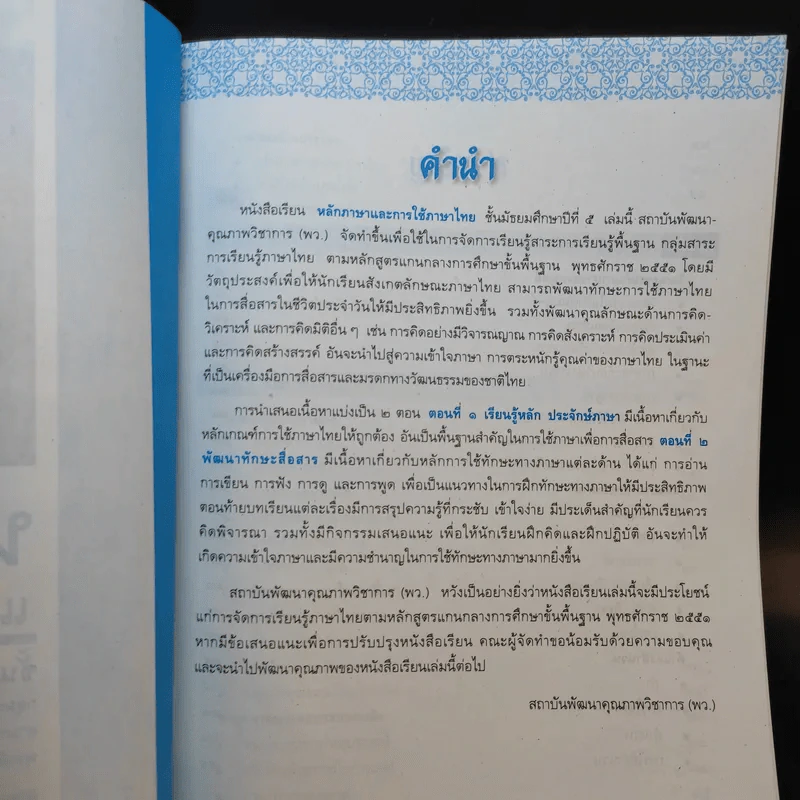 คำนำ
หนังสือเรียน หลักภาษาและการใช้ภาษาไทย ชั้นมัธยมศึกษาปีที่ ๕ เล่มนี้ สถาบันพัฒนา-
คุณภาพวิชาการ (พว.) จัดทำขึ้นเพื่อใช้ในการจัดการเรียนรู้สาระการเรียนรู้พื้นฐาน กลุ่มสาระ
การเรียนรู้ภาษาไทย ตามหลักสูตรแกนกลางการศึกษาขั้นพื้นฐาน พุทธศักราช ๒๕๕๑ โดยมี
วัตถุประสงค์เพื่อให้นักเรียนสังเกตลักษณะภาษาไทย สามารถพัฒนาทักษะการใช้ภาษาไทย
ในการสื่อสารในชีวิตประจำวันให้มีประสิทธิภาพยิ่งขึ้น รวมทั้งพัฒนาคุณลักษณะด้านการคิด-
วิเคราะห์ และการคิดมิติอื่น ๆ เช่น การคิดอย่างมีวิจารณญาณ การคิดสังเคราะห์ การคิดประเมินค่า
และการคิดสร้างสรรค์ อันจะนำไปสู่ความเข้าใจภาษา การตระหนักรู้คุณค่าของภาษาไทย ในฐานะ
ที่เป็นเครื่องมือการสื่อสารและมรดกทางวัฒนธรรมของชาติไทย
การนำเสนอเนื้อหาแบ่งเป็น ๒ ตอน ตอนที่ ๑ เรียนรู้หลัก ประจักษ์ภาษา มีเนื้อหาเกี่ยวกับ
หลักเกณฑ์การใช้ภาษาไทยให้ถูกต้อง อันเป็นพื้นฐานสำคัญในการใช้ภาษาเพื่อการสื่อสาร ตอนที่ ๒
พัฒนาทักษะสื่อสาร มีเนื้อหาเกี่ยวกับหลักการใช้ทักษะทางภาษาแต่ละด้าน ได้แก่ การอ่าน
การเขียน การฟัง การดู และการพูด เพื่อเป็นแนวทางในการฝึกทักษะทางภาษาให้มีประสิทธิภาพ
ตอนท้ายบทเรียนแต่ละเรื่องมีการสรุปความรู้ที่กระชับ เข้าใจง่าย มีประเด็นสำคัญที่นักเรียนควร
คิดพิจารณา รวมทั้งมีกิจกรรมเสนอแนะ เพื่อให้นักเรียนฝึกคิดและฝึกปฏิบัติ อันจะทำให้
เกิดความเข้าใจภาษาและมีความชำนาญในการใช้ทักษะทางภาษามากยิ่งขึ้น
สถาบันพัฒนาคุณภาพวิชาการ (พว.) หวังเป็นอย่างยิ่งว่าหนังสือเรียนเล่มนี้จะมีประโยชน์
แก่การจัดการเรียนรู้ภาษาไทยตามหลักสูตรแกนกลางการศึกษาขั้นพื้นฐาน พุทธศักราช ๒๕๕๑
หากมีข้อเสนอแนะเพื่อการปรับปรุงหนังสือเรียน คณะผู้จัดทำขอน้อมรับด้วยความขอบคุณ
และจะนำไปพัฒนาคุณภาพของหนังสือเรียนเล่มนี้ต่อไป
สถาบันพัฒนาคุณภาพวิชาการ (พว.)